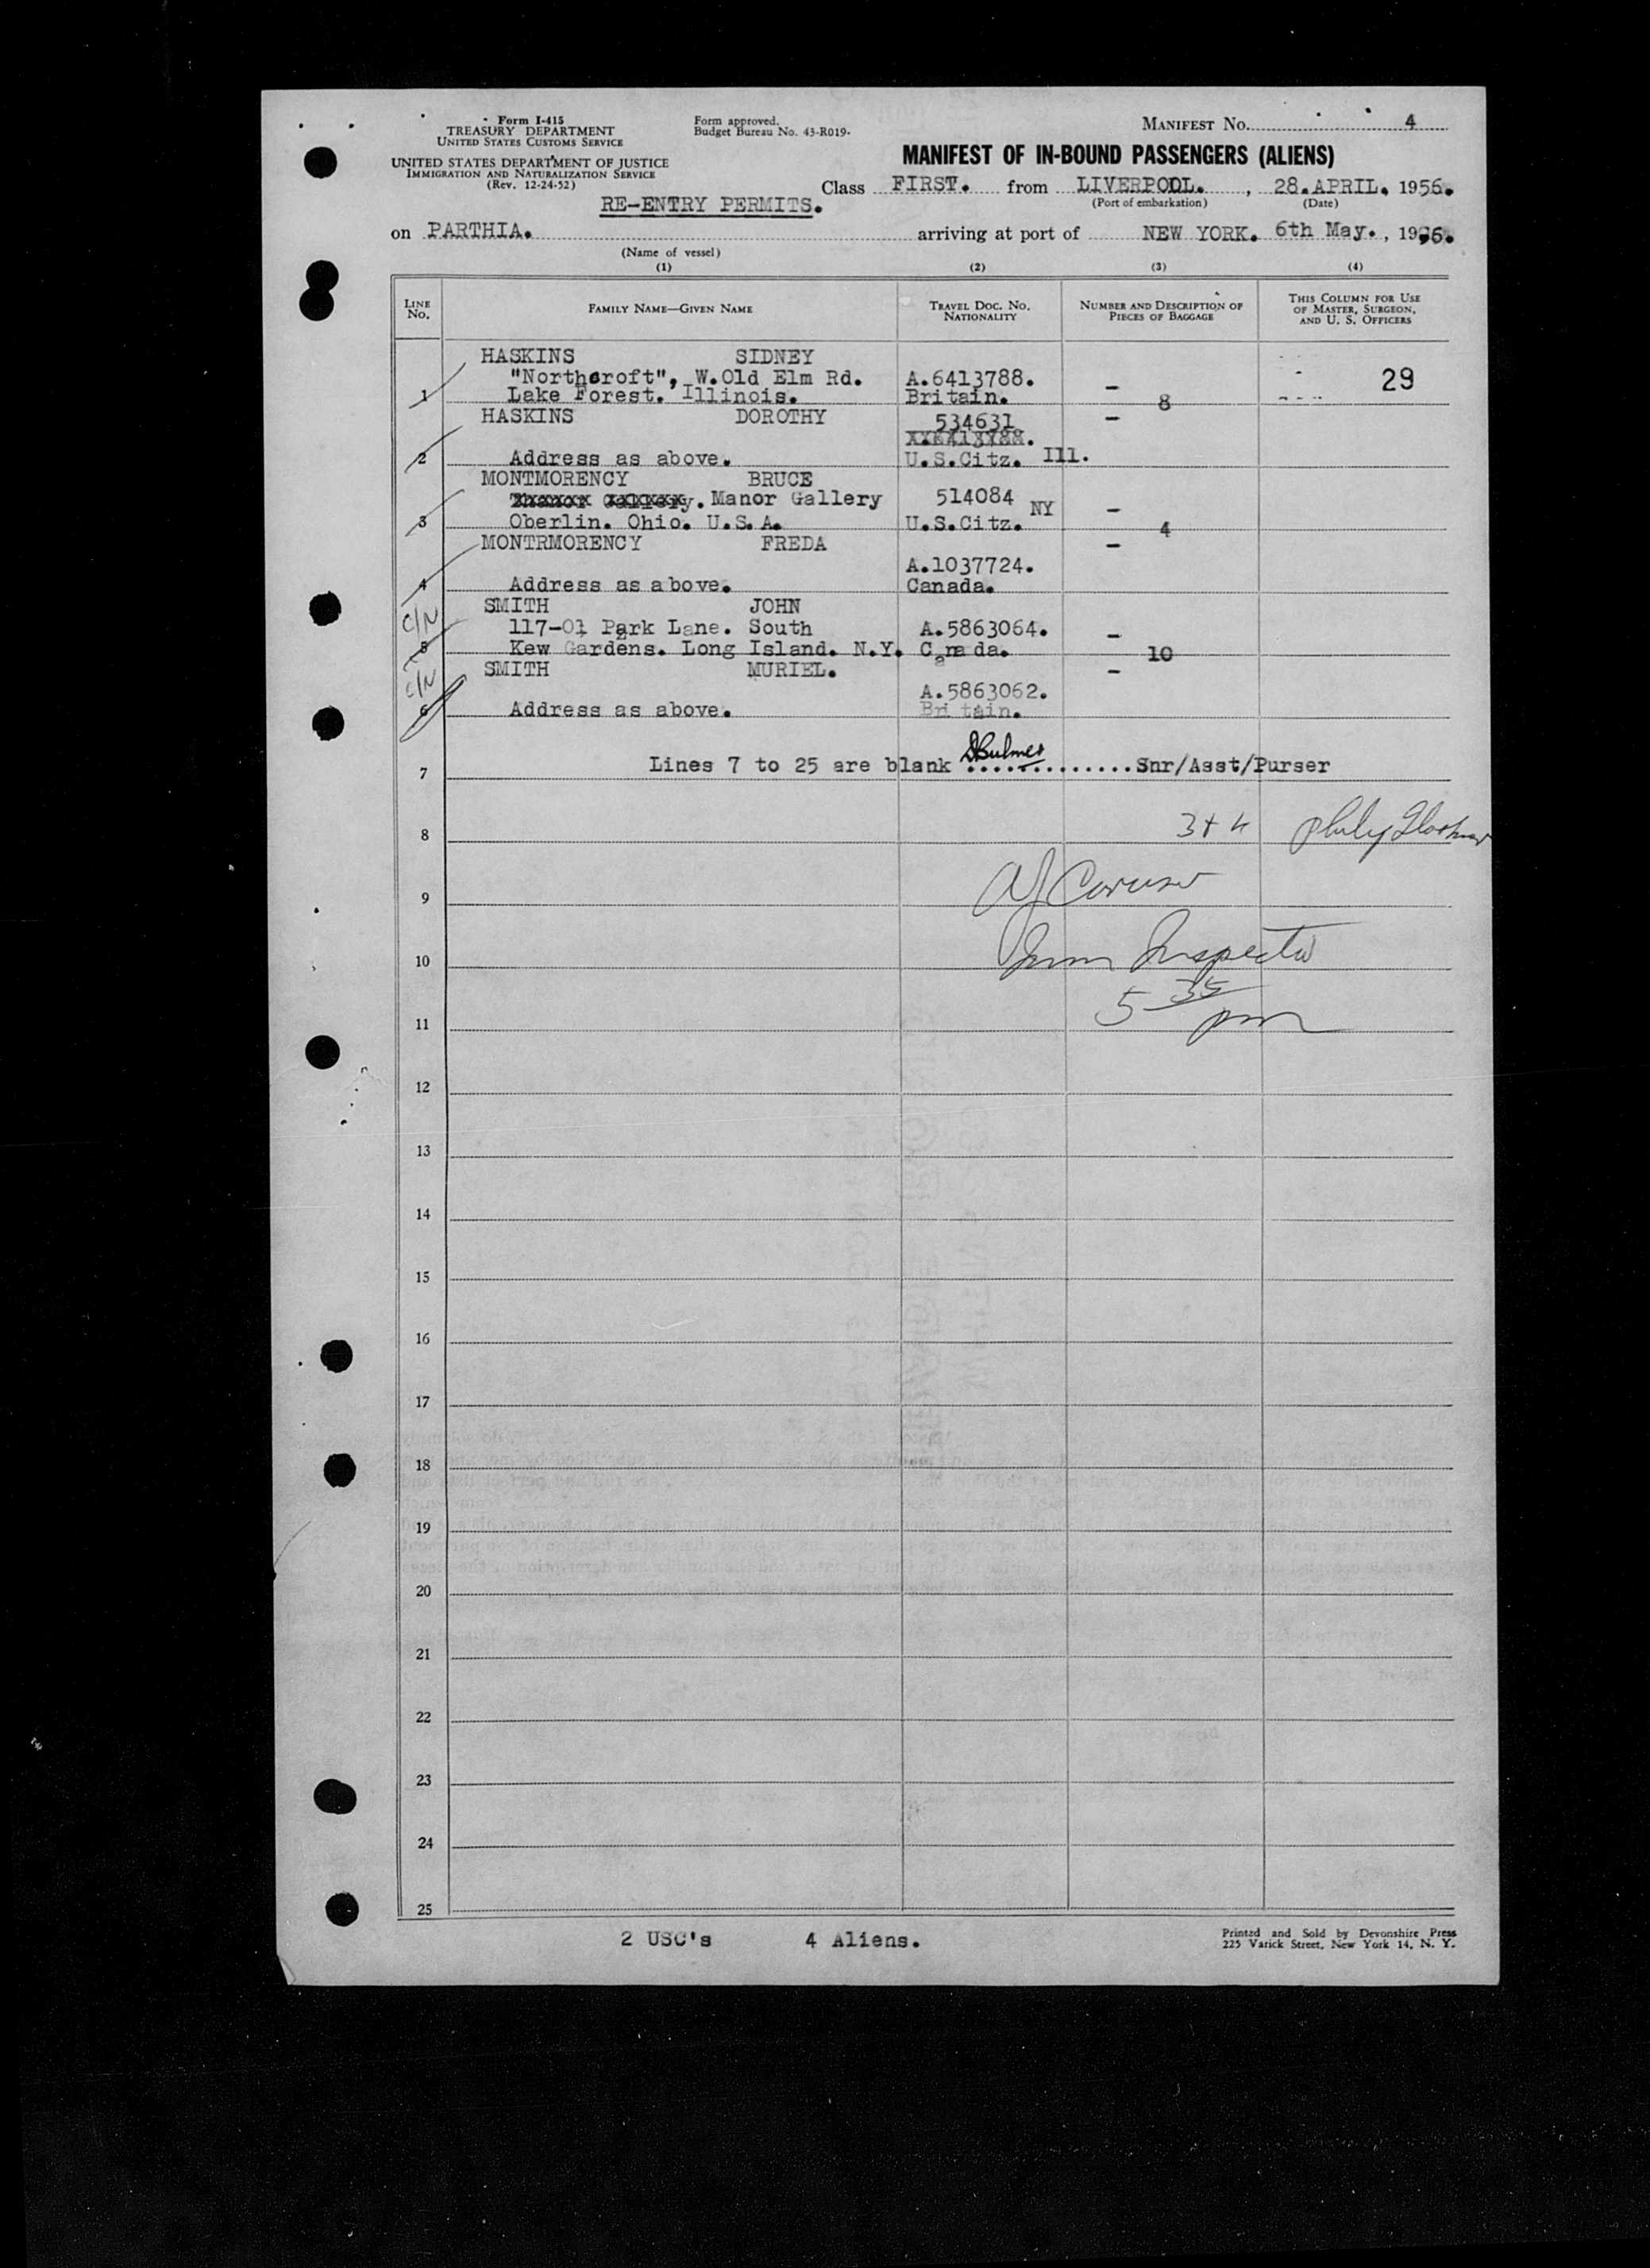 Form I-415
TREASURY DEPARTMENT
UNITED STATES CUSTOMS SERVICE
UNITED STATES DEPARTMENT OF JUSTICE
IMMIGRATION AND NATURALIZATION SERVICE
(Rev. 12-24-52)
Form approved.
Budget Bureau No. 43-R019-
MANIFEST No. 4
MANIFEST OF IN-BOUND PASSENGERS (ALIENS)
Class FIRST. from LIVERPOOL. , 28.APRIL. 1956.
(Port of embarkation) (Date)
RE-ENTRY PERMITS.
on PARTHIA. arriving at port of NEW YORK. 6th May. , 1956.
(Name of vessel)
(1) (2) (3) (4)
LINE No. FAMILY NAME—GIVEN NAME TRAVEL DOC. NO. NATIONALITY NUMBER AND DESCRIPTION OF PIECES OF BAGGAGE THIS COLUMN FOR USE OF MASTER, SURGEON, AND U. S. OFFICERS
HASKINS SIDNEY
"Northcroft", W.Old Elm Rd. A.6413788. - 29
1 Lake Forest. Illinois. Britain. 8
HASKINS DOROTHY 534631 -
2 Address as above. U.S.Citz. Ill.
MONTMORENCY BRUCE
Manor Gallery 514084 NY -
3 Oberlin. Ohio. U.S.A. U.S.Citz. 4
MONTRMORENCY FREDA -
A.1037724.
4 Address as above. Canada.
C/N SMITH JOHN
117-01 Park Lane. South A.5863064. -
5 Kew Gardens. Long Island. N.Y. Canada. 10
C/N SMITH MURIEL. -
A.5863062.
6 Address as above. Britain.
7 Lines 7 to 25 are blank ............. Snr/Asst/Purser
DBulmer
8 3+4
9 AJ Caruso
10 Imm Inspector
11 5 35 pm
12
13
14
15
16
17
18
19
20
21
22
23
24
25
2 USC's 4 Aliens.
Printed and Sold by Devonshire Press
225 Varick Street, New York 14, N. Y.